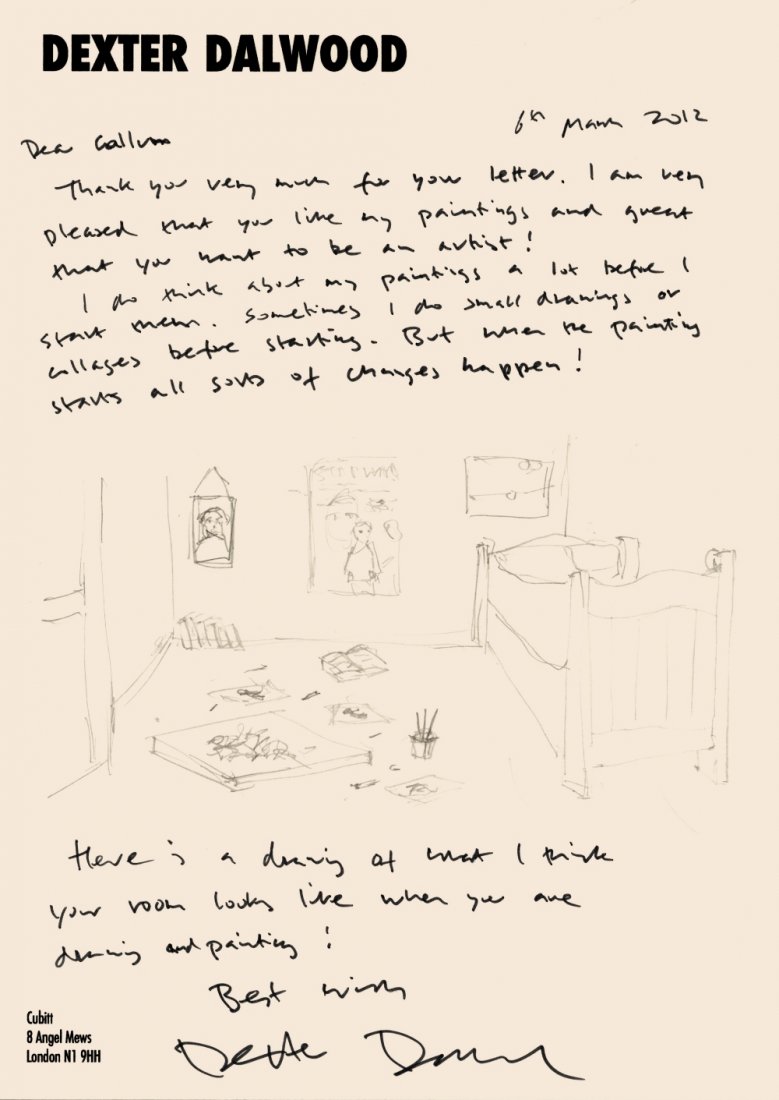 DEXTER DALWOOD
6th March 2012
Dear Callum
Thank you very much for your letter. I am very
pleased that you like my paintings and great
that you want to be an artist!
I do think about my paintings a lot before I
start them. Sometimes I do small drawings or
collages before starting. But when the painting
starts all sorts of changes happen!
Here is a drawing of what I think
your room looks like when you are
drawing and painting!
Best wishes
Dexter Dalwood
Cubitt
8 Angel Mews
London N1 9HH